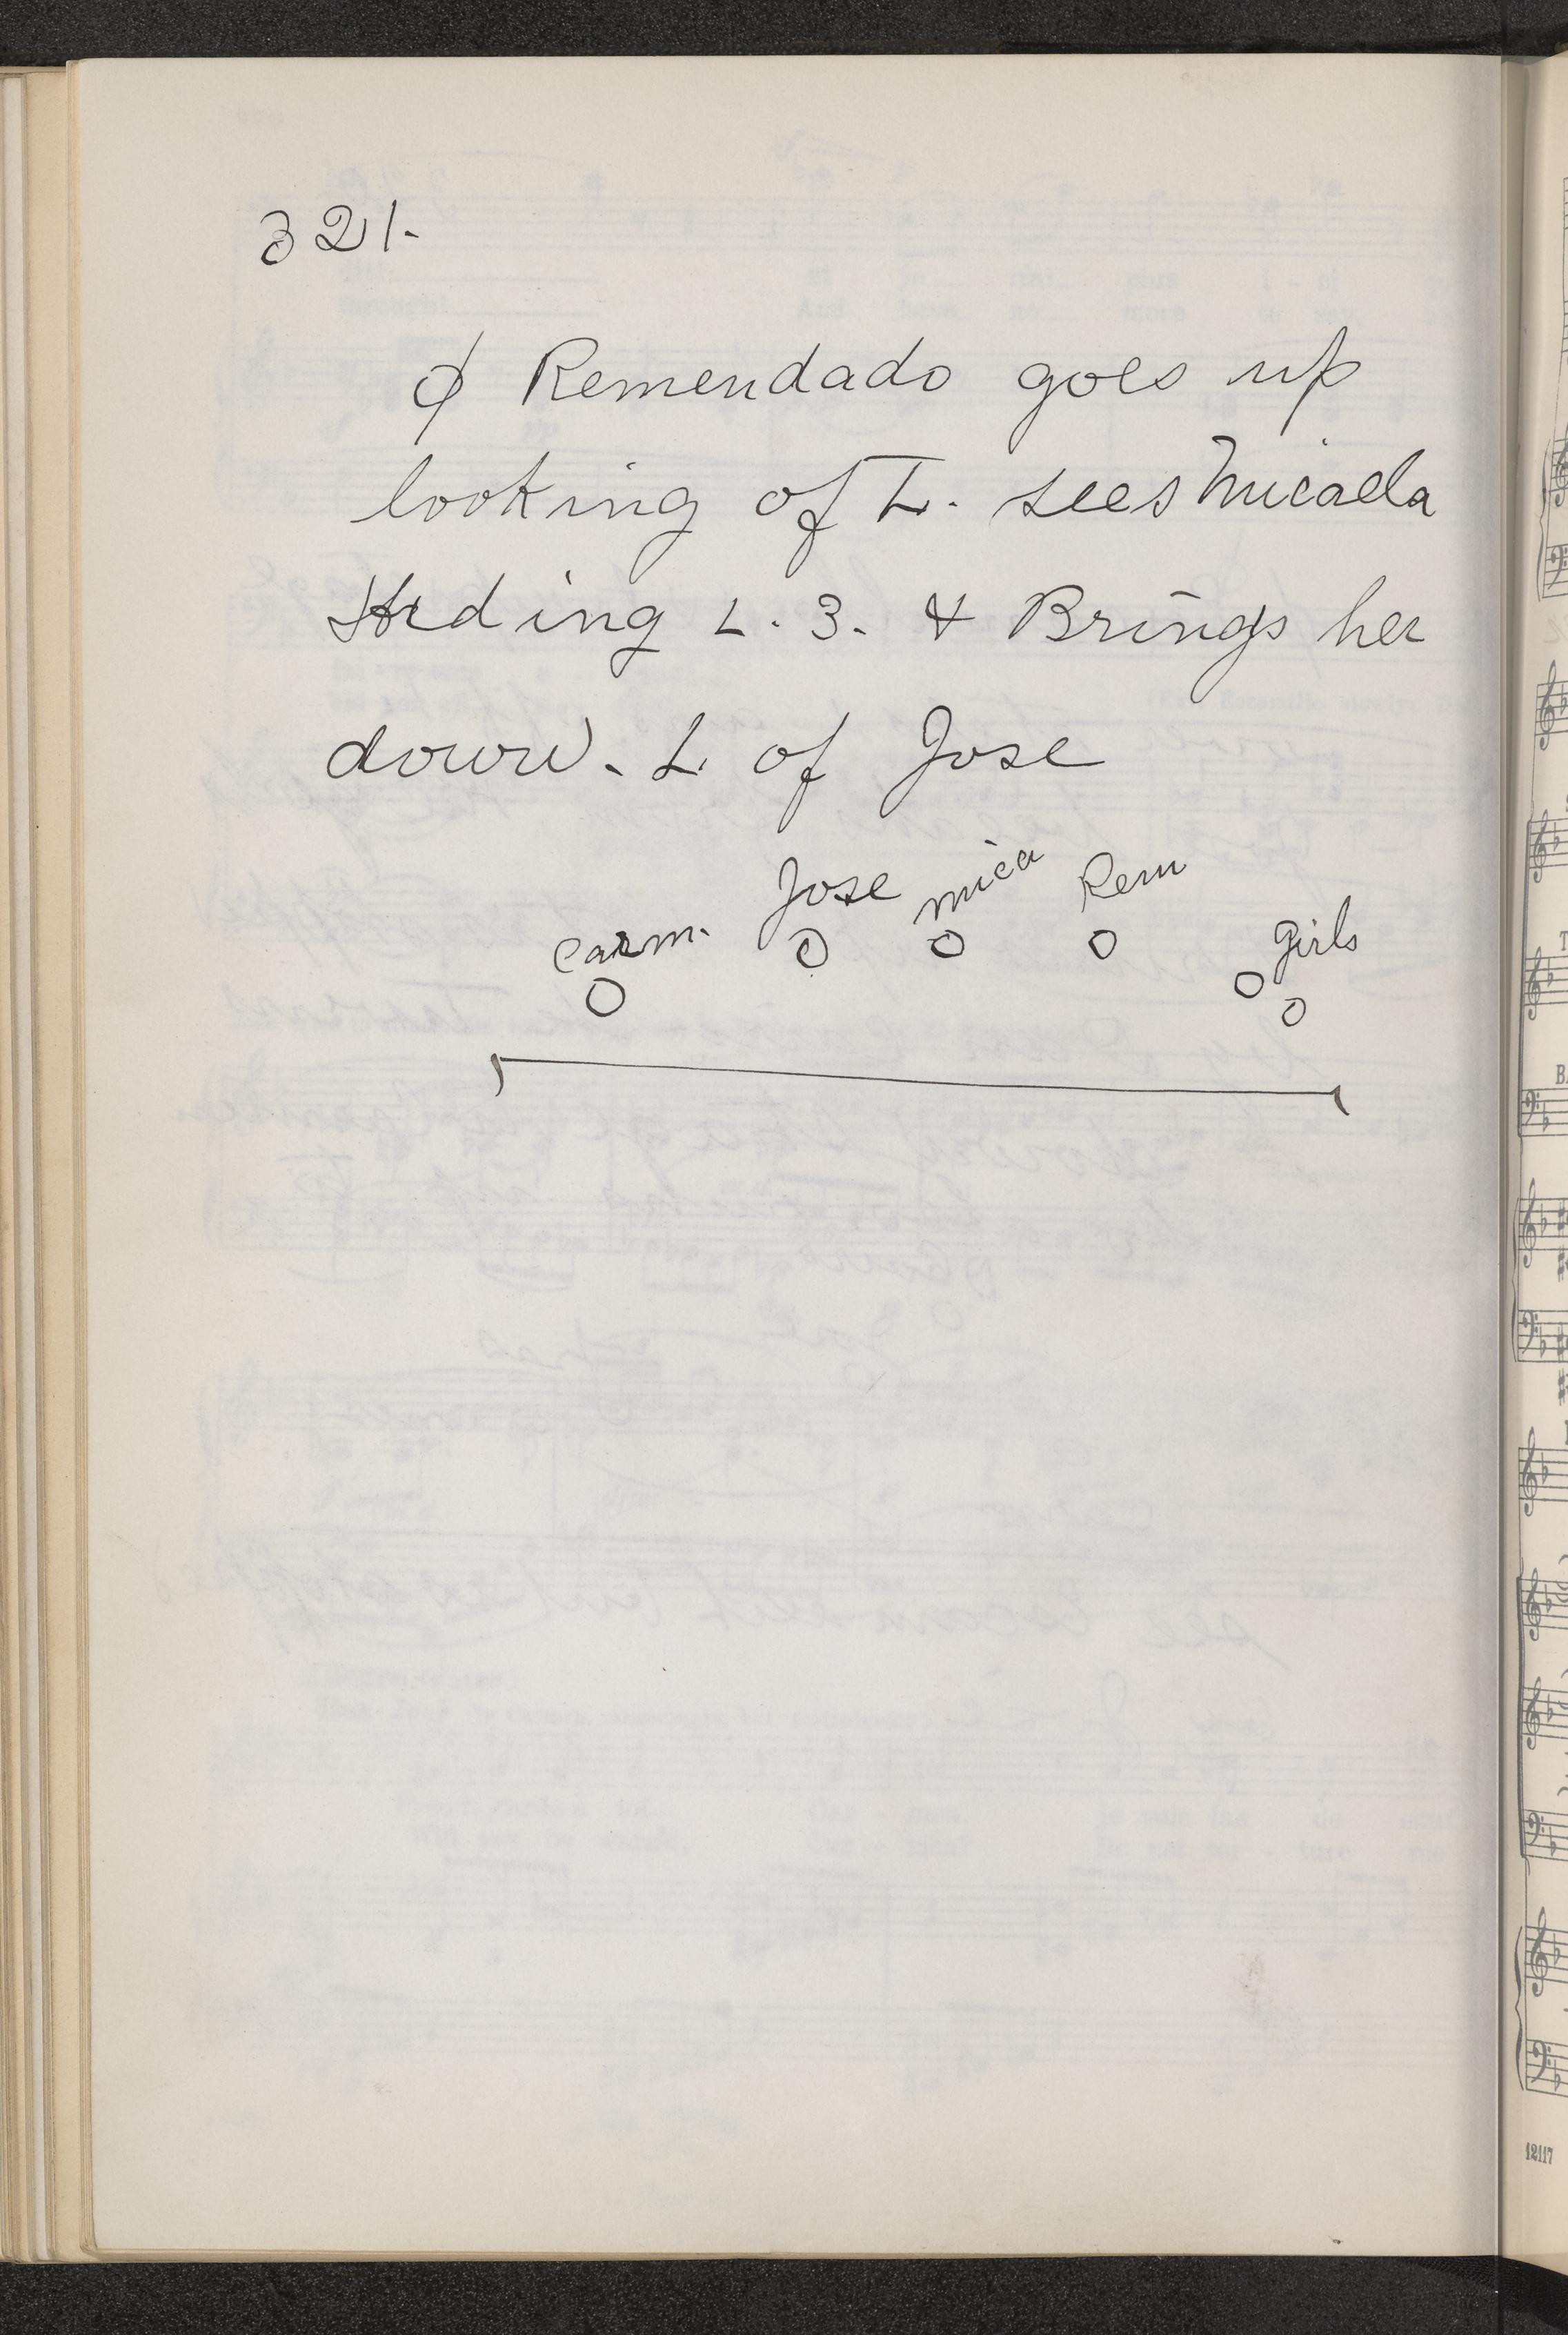 321.
φ Remendado goes up
looking of L. sees Micaela
Hiding L. 3. & Brings her
down. L. of Jose
Carm. Jose Mica Rem girls
12117